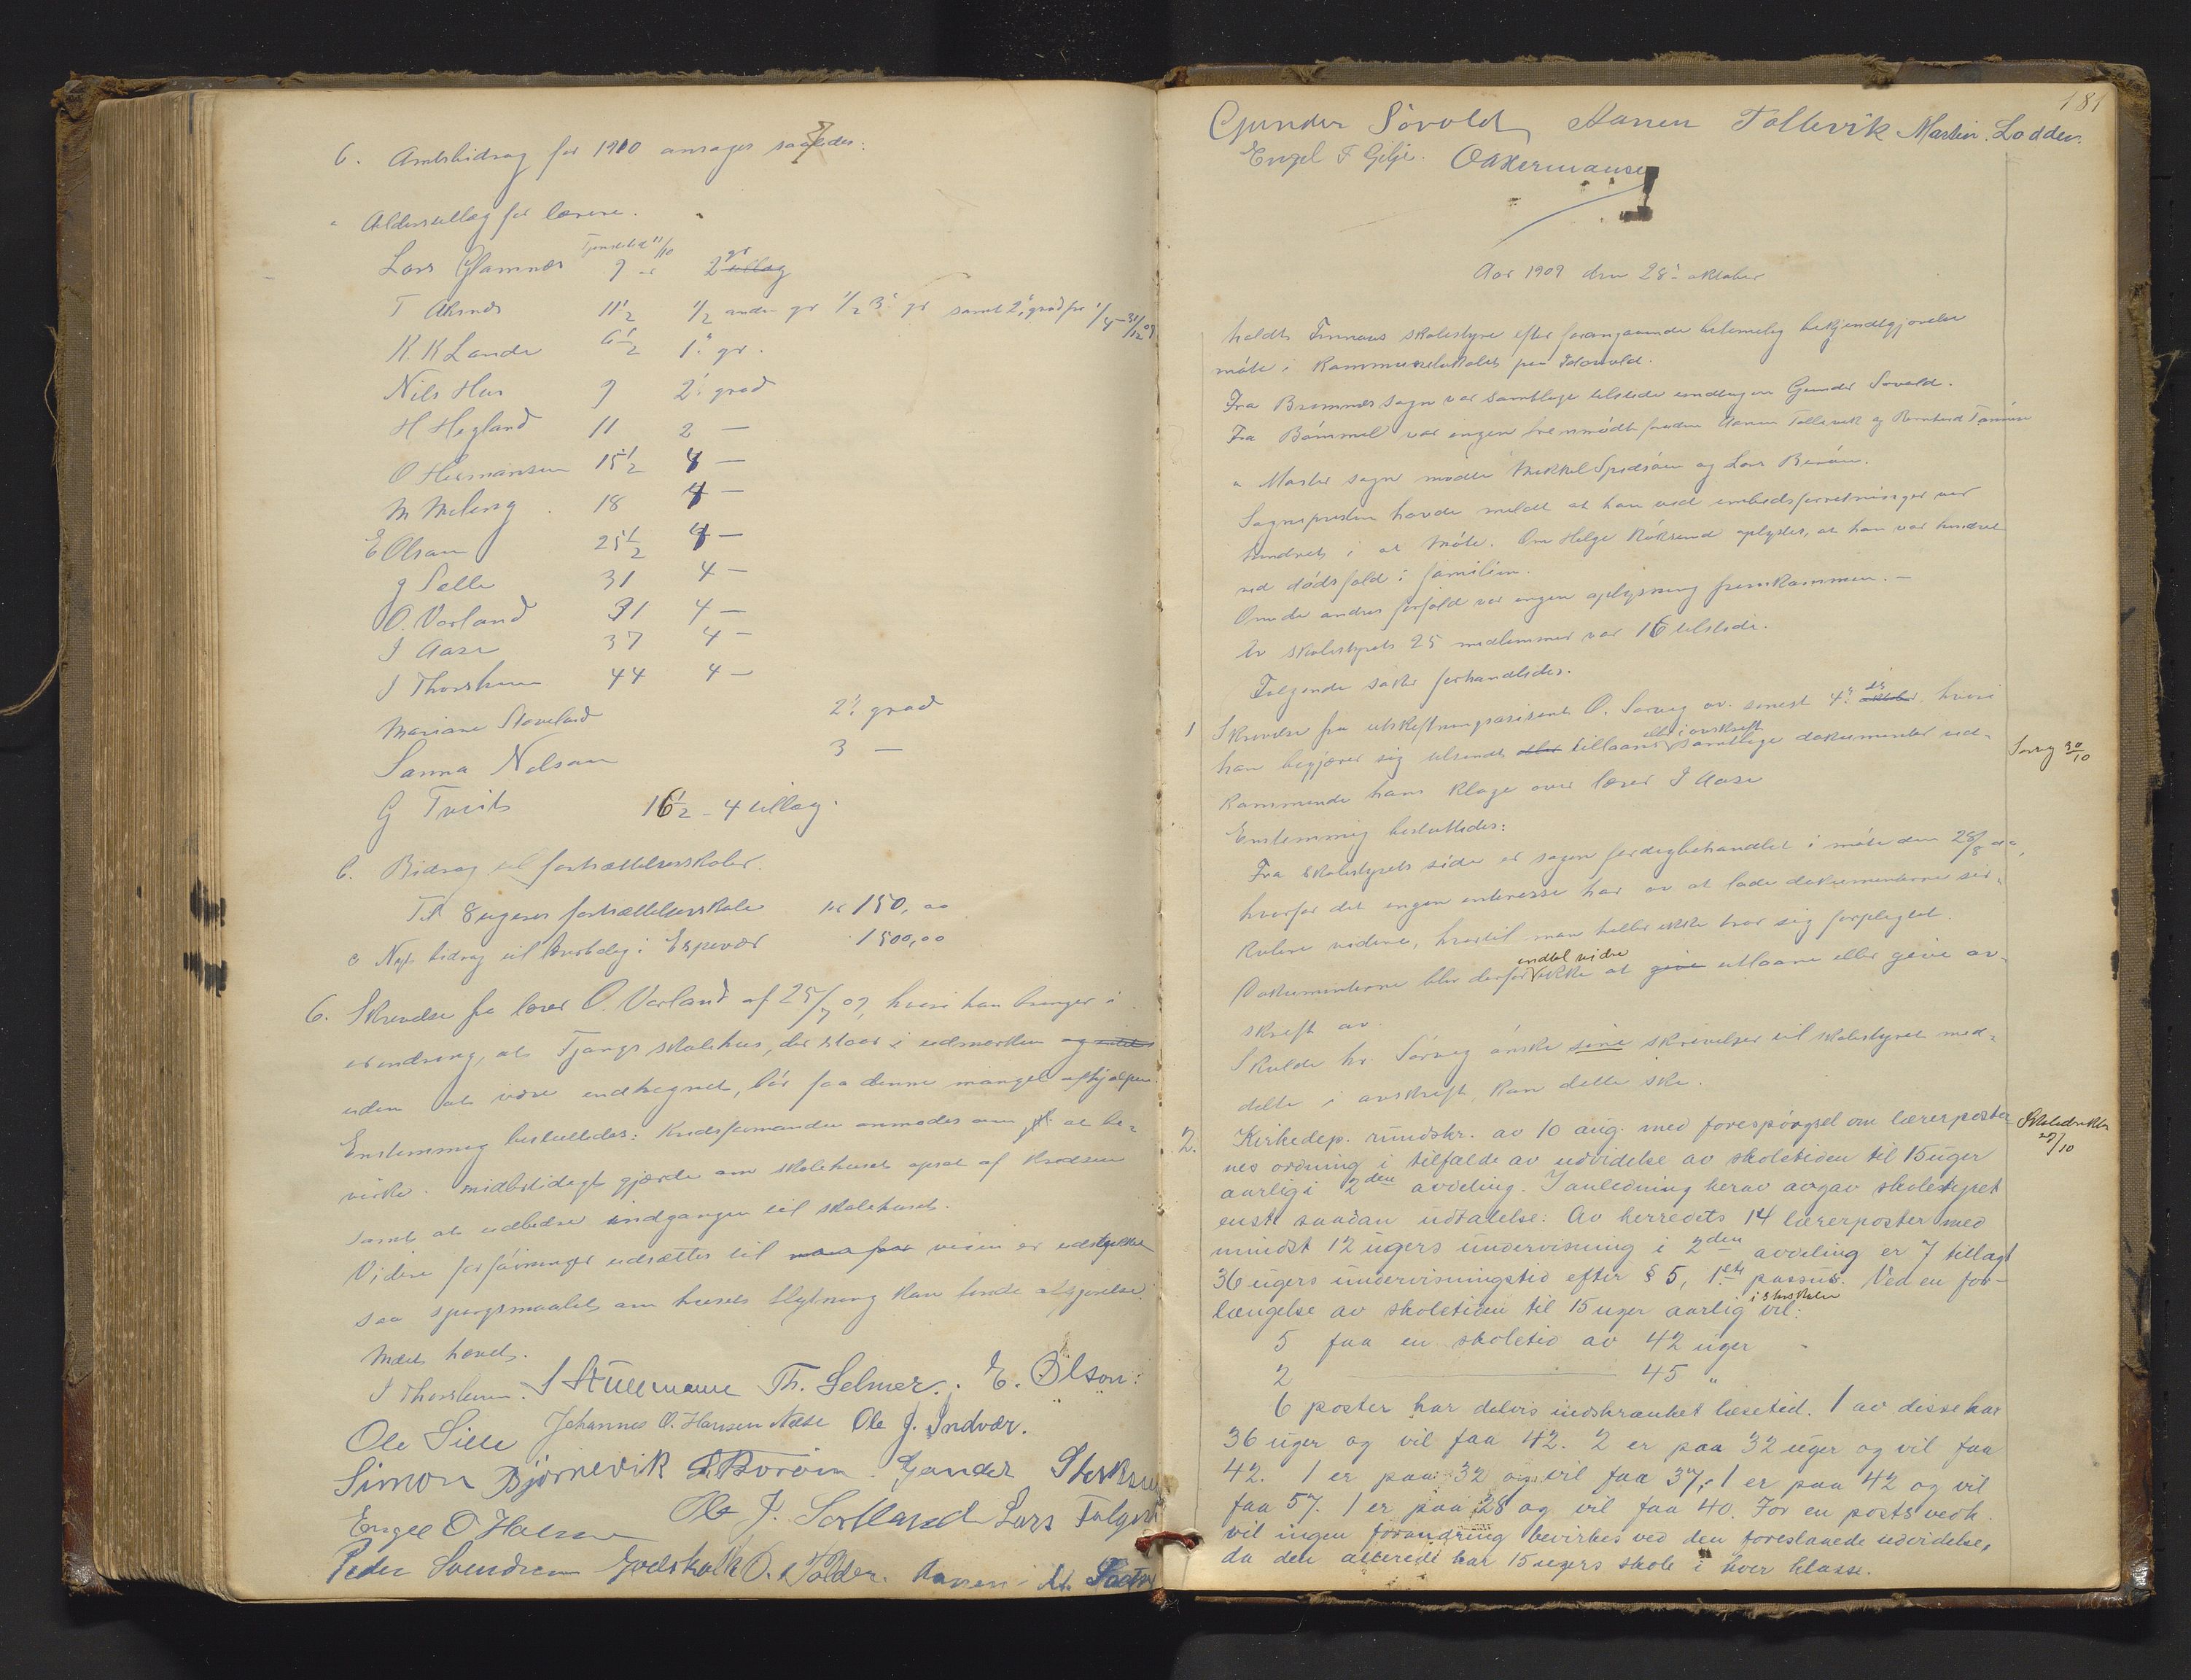 6. Amtsbidrag for 1910 ansøges saaledes:
" Alderstillæg for lærere.
Tjenestetid 1/1 10
Lars Glamnes 9 - 2 gr tillæg
T Aksnes 11 1/2 1/2 anden gr 1/2 3. gr samt 2. grad fra 1/4 - 31/12 09
K. K Lande 6 1/2 1. gr.
Nils Hus 9 2. grad
H Hegland 11 2 —
O Hermansen 15 1/2 4 —
M Meling 18 4 —
E Olsen 25 1/2 4 —
J Sælle 31 4 —
O. Vorland 31 4 —
I Aase 37 4 —
J Thorsheim 44 4 —
Mariane Stoveland 2. grad
Sanna Nelson 3 —
G Tveit 16 1/2 - 4 tillæg.
b. Bidrag til fortsættelsesskoler.
Til 8 ugers fortsættelsesskole kr 150,00
c Nyt bidrag til lærerbolig i Espevær 1500,00
6. Skrivelse fra lærer O. Vorland af 25/7 09, hvori han bringer i
erindring, at Tjongs skolehus, der staar i udmarken og
uden at være indhegnet, bør faa denne mangel afhjulpen.
Enstemmig besluttedes: Kredsformanden anmodes om at be-
virke midlertidigt gjærde om skolehuset opsat af kredsen
samt at udbedre indgangen til skolehuset.
Videre forføininger udsættes til veien er udstykket
saa spørgsmaalet om husets flytning kan finde afgjørelse.
Mødet hævet.
J Thorsheim. J Stüllmann Th. Selmer. E. Olson.
Ole Lille Johannes O. Hansen Næse Ole J. Indvær.
Simon Bjørnevik L. Borøen. Gunder
Engel O Halsen Ole J. Sortland Lars
Peder Svendsen Godskalk O. Folden. Aanen
181
Gunder Søvold, Aanen Tollevik Martin Lodden.
Engel F Gilje. O Hermansen
Aar 1909 den 28. oktober
holdt Finnaas skolestyre efter forangaaende betimelig bekjendtgjørelse
møte i kommunelokalet paa Idavold.
Fra Bremnes sogn var samtlige tilstede undtagen Gunder Søvold.
Fra Bømmel var ingen fremmødt foruden Aanen Tollevik og Bernhard
" Moster sogn mødte Mikkel Spidsøen og Lars Borøen.
Sognepresten havde meldt at han ved embedsforretninger var
hindret i at møte. Om Helge Røksund oplystes, at han var hindret
ved dødsfald i familien.
Om de andres forfald var ingen oplysning fremkommen. —
Av skolestyrets 25 medlemmer var 16 tilstede.
Følgende saker forhandledes.
1 Skrivelse fra utskiftningsassistent O. Sørvig av senest 4. ds oktober, hvori
han begjærer sig tilsendt eller tillaans eller i avskrift samtlige dokumenter ved-
kommende hans klage over lærer I Aase
Sørvig 30/10
Enstemmig besluttedes:
Fra skolestyrets side er sagen ferdigbehandlet i møte den 28/8 d.a.,
hvorfor det ingen interesse har av at lade dokumenterne sir-
kulere videre, hvortil man heller ikke tror sig forpligtet.
Dokumenterne blir derfor indtil videre ikke at give utlaane eller give av-
skrift av.
Skulde hr. Sørvig ønske sine skrivelser til skolestyret med-
delte i avskrift, kan dette ske.
2. Kirkedep. rundskr. av 10 aug. med forespørgsel om lærerposter-
Skoledirektør 29/10
nes ordning i tilfælde av udvidelse av skoletiden til 15 uger
aarlig i 2den avdeling. I anledning herav avgav skolestyret
enst. saadan udtalelse: Av herredets 14 lærerposter med
mindst 12 ugers undervisning i 2den avdeling er 7 tillagt
36 ugers undervisningstid efter § 5, 1ste passus. Ved en for-
længelse av skoletiden til 15 uger aarlig i storskolen vil:
5 faa en skoletid av 42 uger
2 — 45 "
6 poster har delvis indskrænket læsetid. 1 av disse har
36 uger og vil faa 42. 2 er paa 32 uger og vil faa
42. 1 er paa 32 og vil faa 37, 1 er paa 42 og vil
faa 57. 1 er paa 28 og vil faa 40. For en posts vedk.
vil ingen forandring bevirkes ved den foreslaaede udvidelse,
da den allerede har 15 ugers skole i hver klasse.